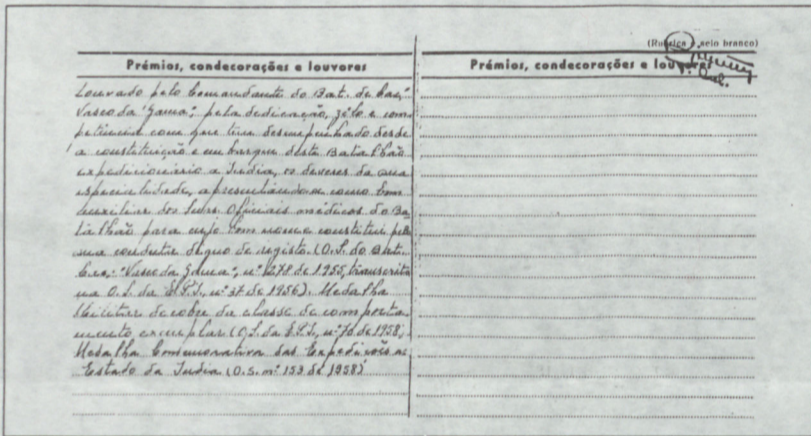 (Rubrica e selo branco)
Prémios, condecorações e louvores
Louvado pelo Comandante do Bat. de Caç.
"Vasco da Gama", pela dedicação, zêlo e com
petência com que tem desempenhado desde
a constituição e embarque deste Batalhão
expedicionário a India, os deveres da sua
especialidade, apresentando-se como bom
auxiliar dos Snrs. Oficiais médicos do Ba
talhão para cujo bom nome constitui pela
sua conduta digna de registo. (O.S. do Bat.
Caç. "Vasco da Gama", nº 278 de 1955, transcrita
na O.S. da nº 37 de 1956). Medalha
Militar de cobre da classe de comporta
mento exemplar (O.S. da nº 70 de 1958)
Medalha Comemorativa das Expedições ao
Estado da India (O.S. nº 153 de 1958)
Prémios, condecorações e louvores